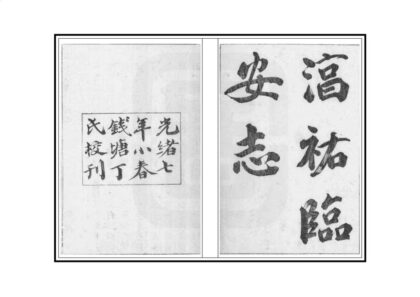 湻祐臨
安志
光緒七
年小春
錢塘丁
氏校刊